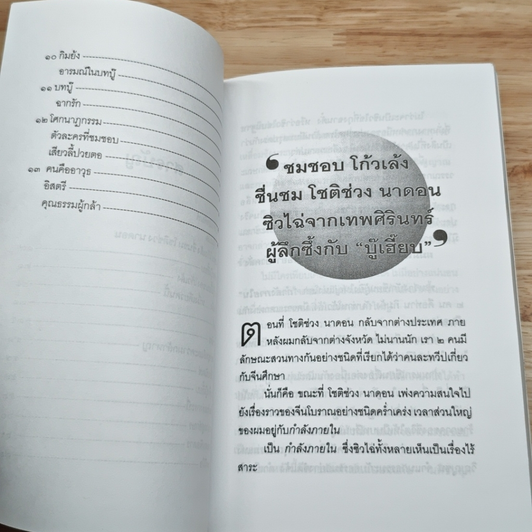 ๑๐ กิมย้ง
อารมณ์ในบทบู๊
๑๑ บทบู๊
ฉากรัก
๑๒ โศกนาฏกรรม
ตัวละครที่ชมชอบ
เสียวลี้ปวยตอ
๑๓ คนคืออาวุธ
อิสตรี
คุณธรรมผู้กล้า
“ชมชอบ โก้วเล้ง
ชื่นชม โชติช่วง นาดอน
ซิวไฉ่จากเทพศิรินทร์
ผู้ลึกซึ้งกับ “บู๊เฮี๊ยบ””
ตอนที่ โชติช่วง นาดอน กลับจากต่างประเทศ ภาย
หลังผมกลับจากต่างจังหวัด ไม่นานนัก เรา ๒ คนมี
ลักษณะสวนทางกันอย่างชนิดที่เรียกได้ว่าคนละทวีปเกี่ยว
กับจีนศึกษา
นั่นก็คือ ขณะที่ โชติช่วง นาดอน เพ่งความสนใจไป
ยังเรื่องราวของจีนโบราณอย่างชนิดคร่ำเคร่ง เวลาส่วนใหญ่
ของผมอยู่กับกำลังภายใน
เป็น กำลังภายใน ซึ่งซิวไฉ่ทั้งหลายเห็นเป็นเรื่องไร้
สาระ